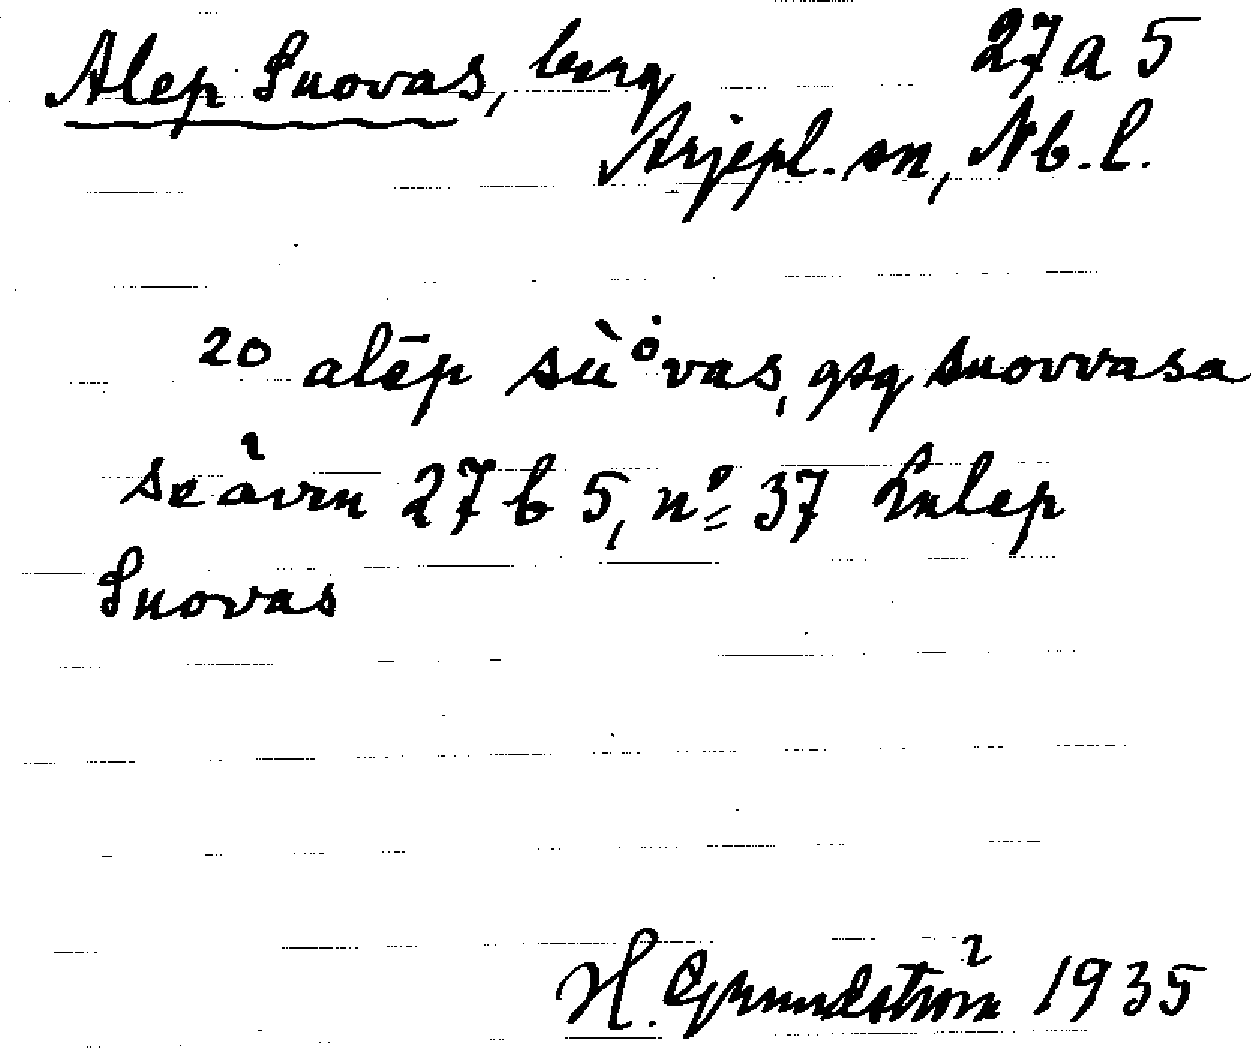 Alep Suovas, berg 27 a 5
Arjepl. sn, Nb. l.
20 alēp sùȯvas, gsg suovvasa
se även 27 b 5, nº 37 Lulep
Suovas
H. Grundström 1935